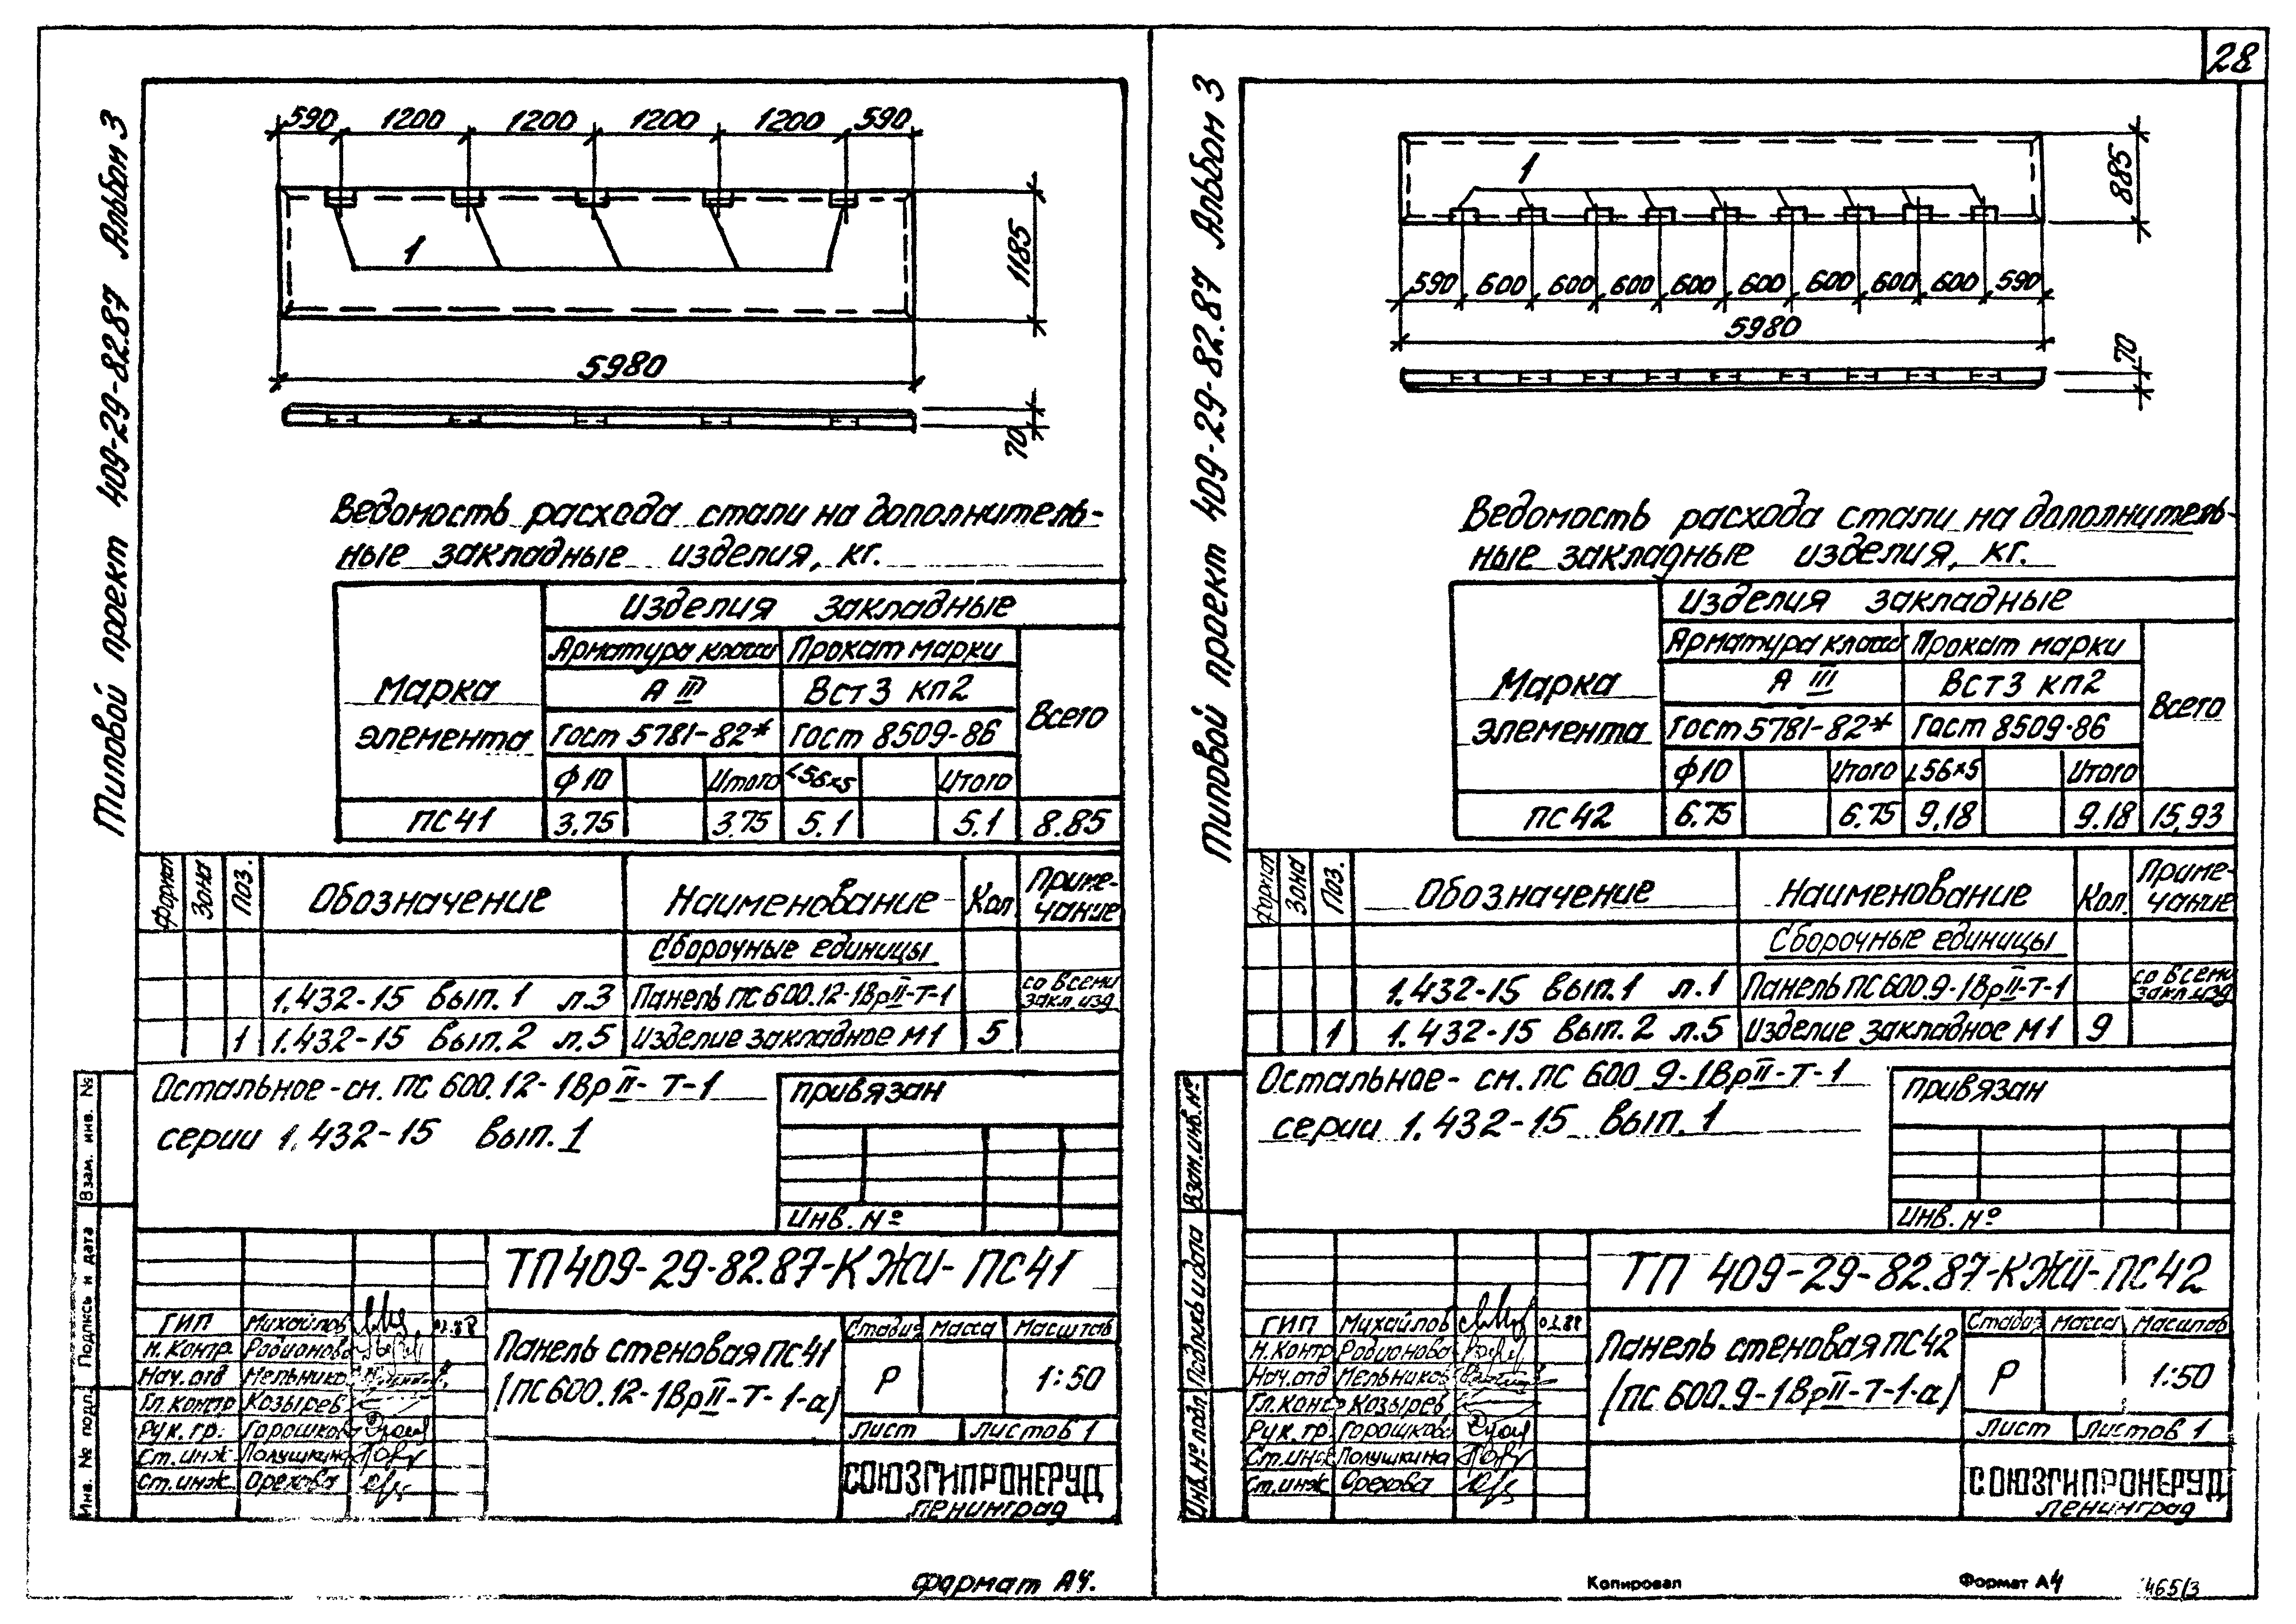 28
Типовой проект 409-29-82.87 Альбом 3
590 1200 1200 1200 1200 590
1
1185
5980
70
Ведомость расхода стали на дополнитель-
ные закладные изделия, кг.
Марка элемента
Изделия закладные
Арматура класса Прокат марки
А III ВСт3 кп2
Всего
Гост 5781-82* Гост 8509-86
ф10 Итого L56×5 Итого
ПС41 3.75 3.75 5.1 5.1 8.85
Формат Зона Поз. Обозначение Наименование Кол. Приме-
чание
Сборочные единицы
1.432-15 вып.1 л.3 Панель ПС600.12-1ВрII-Т-1 со всеми закл.изд.
1 1.432-15 вып.2 л.5 Изделие закладное М1 5
Остальное - см. ПС 600.12-1ВрII-Т-1
серии 1.432-15 вып.1
Привязан
Инв. №
Взам. инв. №
Подпись и дата
Инв. № подл.
ТП409-29-82.87-КЖИ-ПС41
ГИП Михайлов
Н.контр. Родионова
Нач.отд Мельников
Гл.контр Козырев
Рук. гр. Горошкова
Ст.инж Полушкина
Ст.инж. Орехова
Панель стеновая ПС41
(ПС600.12-1ВрII-Т-1-а)
Стадия Масса Масштаб
Р 1:50
Лист Листов 1
СОЮЗГИПРОНЕРУД
Ленинград
Формат А4.
Типовой проект 409-29-82.87 Альбом 3
1
885
590 600 600 600 600 600 600 600 600 590
5980
70
Ведомость расхода стали на дополнитель-
ные закладные изделия, кг.
Марка элемента
Изделия закладные
Арматура класса Прокат марки
А III ВСт3 кп2
Всего
Гост 5781-82* Гост 8509-86
ф10 Итого L56×5 Итого
ПС42 6.75 6.75 9.18 9.18 15,93
Формат Зона Поз. Обозначение Наименование Кол. Приме-
чание
Сборочные единицы
1.432-15 вып.1 л.1 Панель ПС600.9-1ВрII-Т-1 со всеми закл.изд
1 1.432-15 вып.2 л.5 Изделие закладное М1 9
Остальное - см. ПС 600.9-1ВрII-Т-1
серии 1.432-15 вып.1
Привязан
Инв. №
Взам.инв.№
Подпись и дата
Инв.№ подл.
ТП 409-29-82.87-КЖИ-ПС42
ГИП Михайлов 02.88
Н.контр Родионова
Нач.отд Мельников
Гл.контр Козырев
Рук. гр Горошкова
Ст.инж Полушкина
Ст.инж Орехова
Панель стеновая ПС42
(ПС600.9-1ВрII-Т-1-а)
Стадия Масса Масштаб
Р 1:50
Лист Листов 1
СОЮЗГИПРОНЕРУД
Ленинград
Копировал Формат А4 465/3